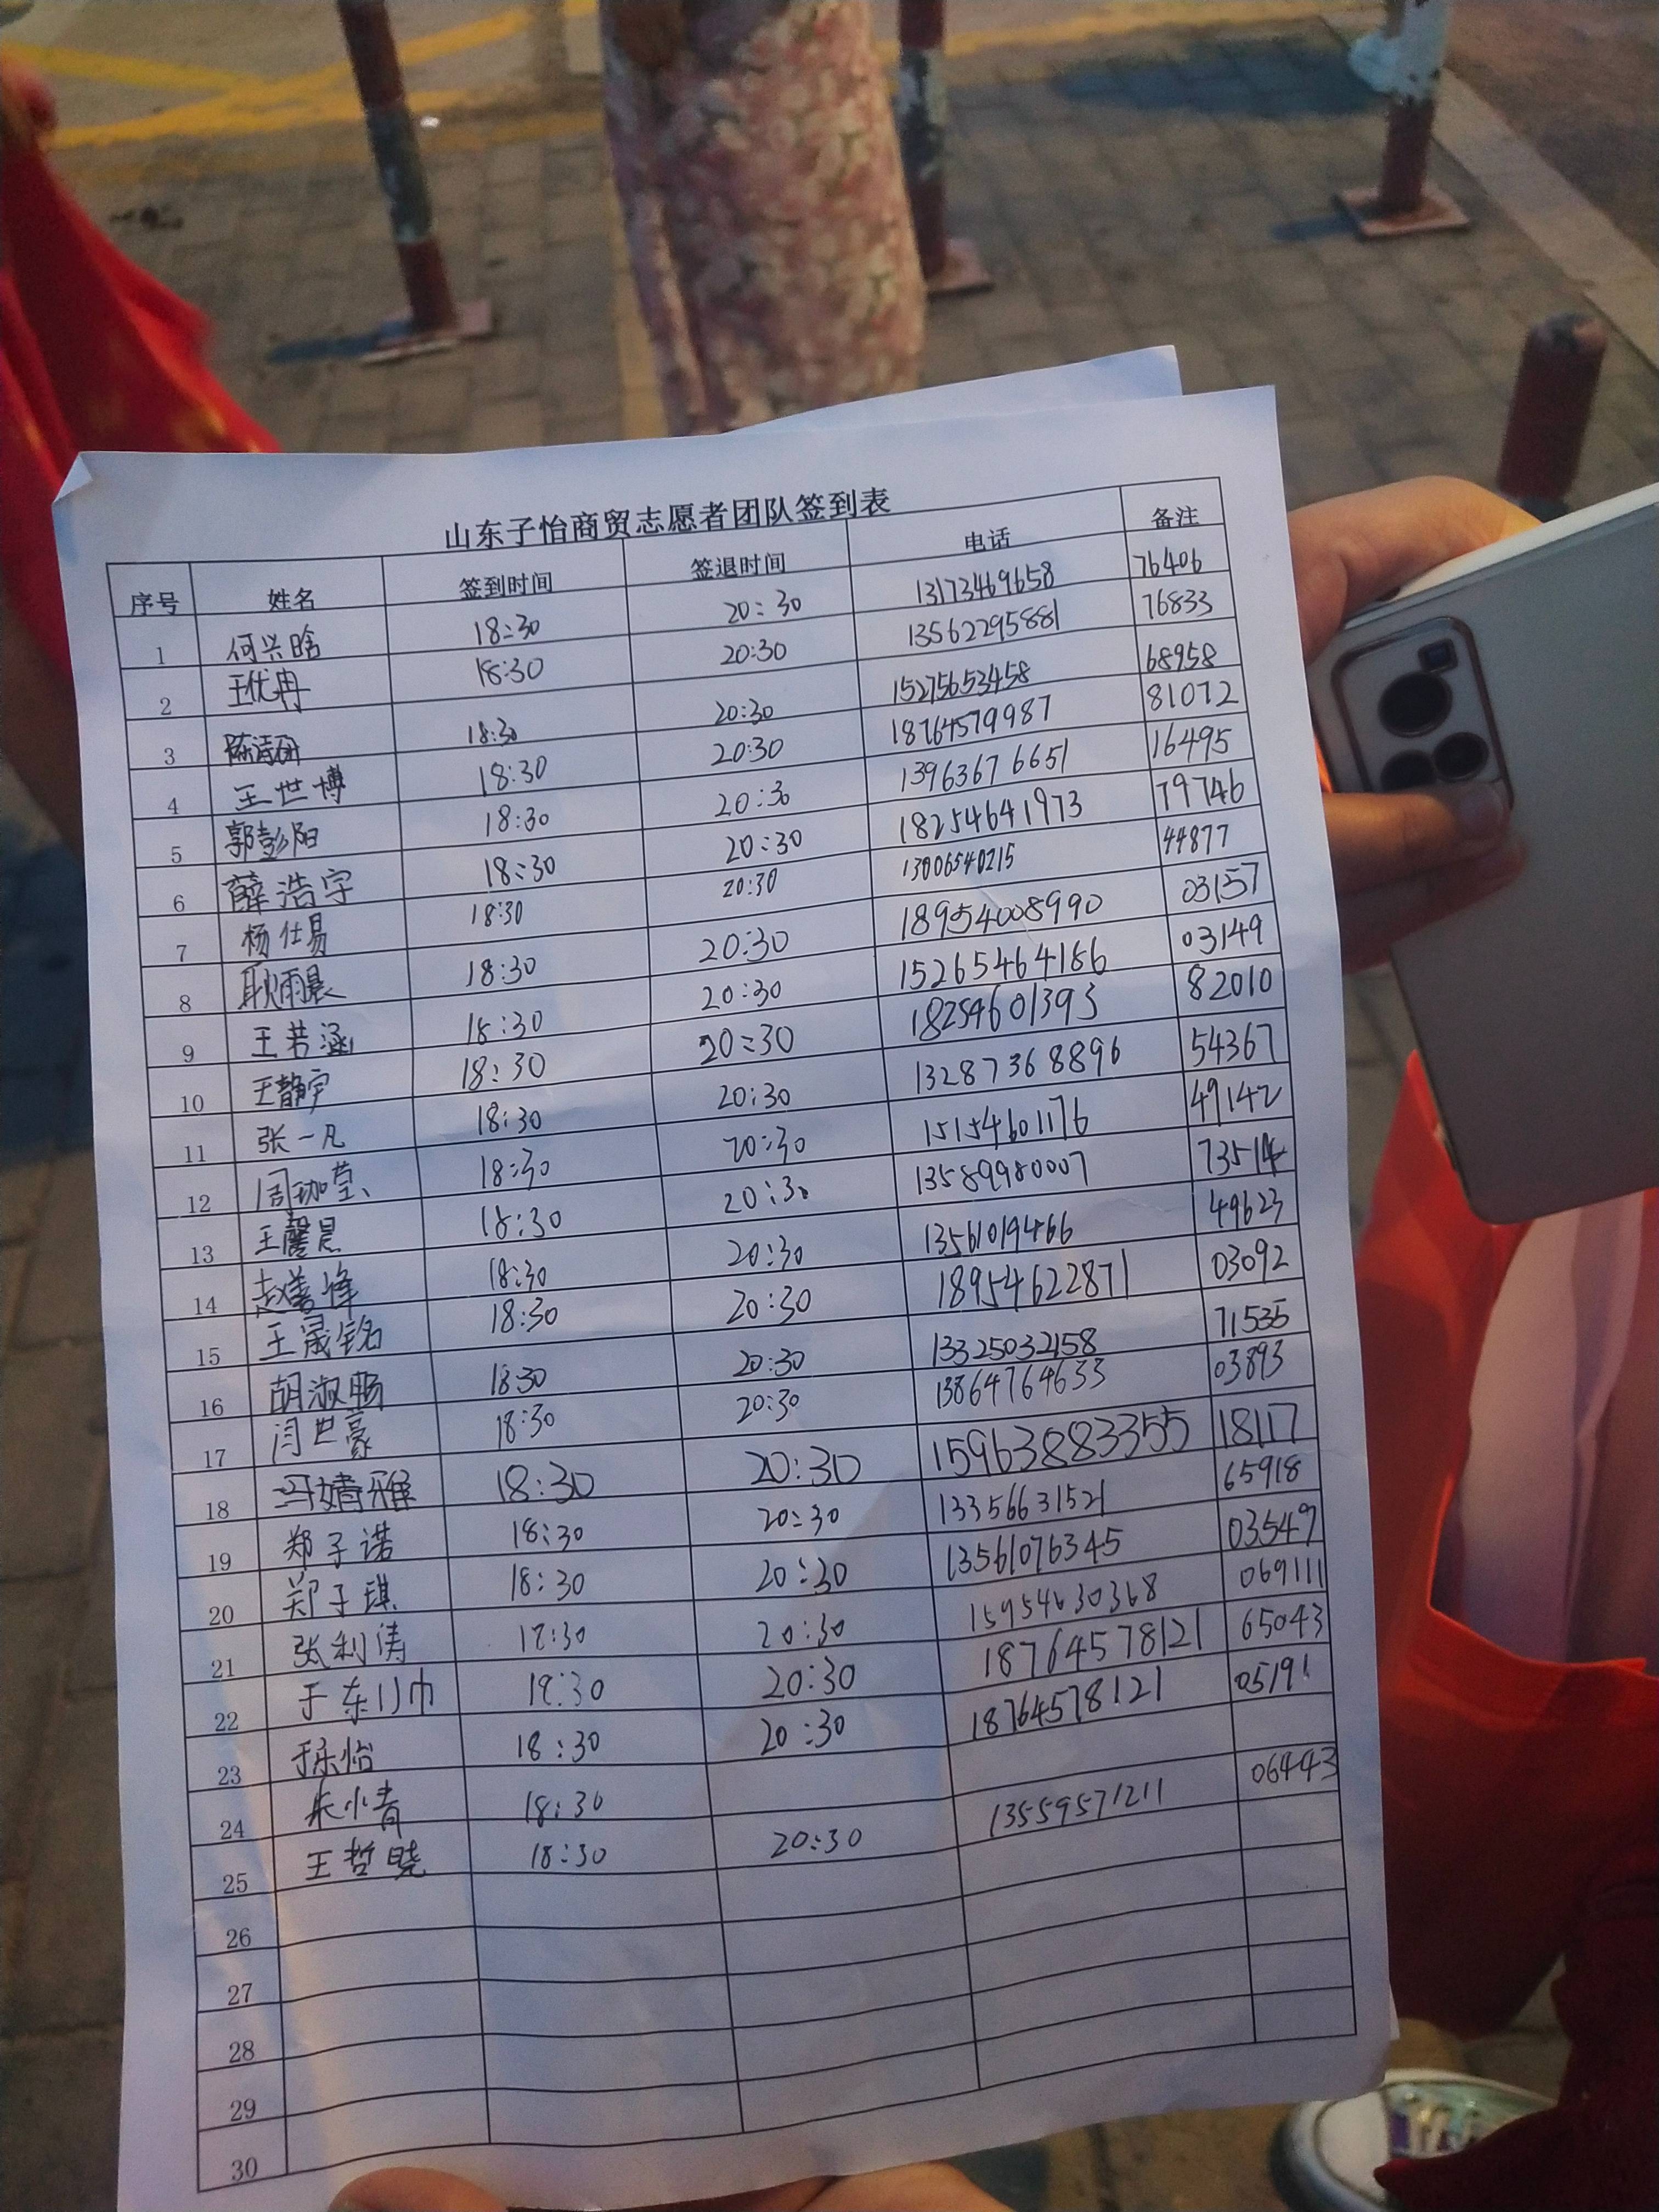 山东子怡商贸志愿者团队签到表
序号 姓名 签到时间 签退时间 电话 备注
1 何兴晗 18:30 20:30 13173469658 76406
2 王优冉 18:30 20:30 13562295881 76833
3 陈诗研 18:30 20:30 15275653458 68958
4 王世博 18:30 20:30 18764579987 81072
5 郭彭阳 18:30 20:30 13963676651 16495
6 薛浩宇 18:30 20:30 18254641973 79746
7 杨仕易 18:30 20:30 13006540215 44877
8 耿雨晨 18:30 20:30 18954008990 03157
9 王若涵 18:30 20:30 15265464166 03149
10 王静宇 18:30 20:30 18254601393 82010
11 张一凡 18:30 20:30 13287368896 54367
12 周珈莹 18:30 20:30 15154601176 49142
13 王馨晨 18:30 20:30 13589980007 73514
14 18:30 20:30 13561019466 49623
15 王晟铭 18:30 20:30 18954622871 03092
16 胡淑畅 18:30 20:30 13325032158 71535
17 闫世豪 18:30 20:30 13864764633 03893
18 冯婧雅 18:30 20:30 15963883355 18117
19 郑子诺 18:30 20:30 13356631521 65918
20 郑子琪 18:30 20:30 13561076345 03549
21 张利涛 18:30 20:30 15954630368 069111
22 于东川巾 18:30 20:30 18764578121 65043
23 于乐怡 18:30 20:30 18764578121 05191
24 朱小青 18:30
25 王哲晓 18:30 20:30 13559571211 06443
26
27
28
29
30